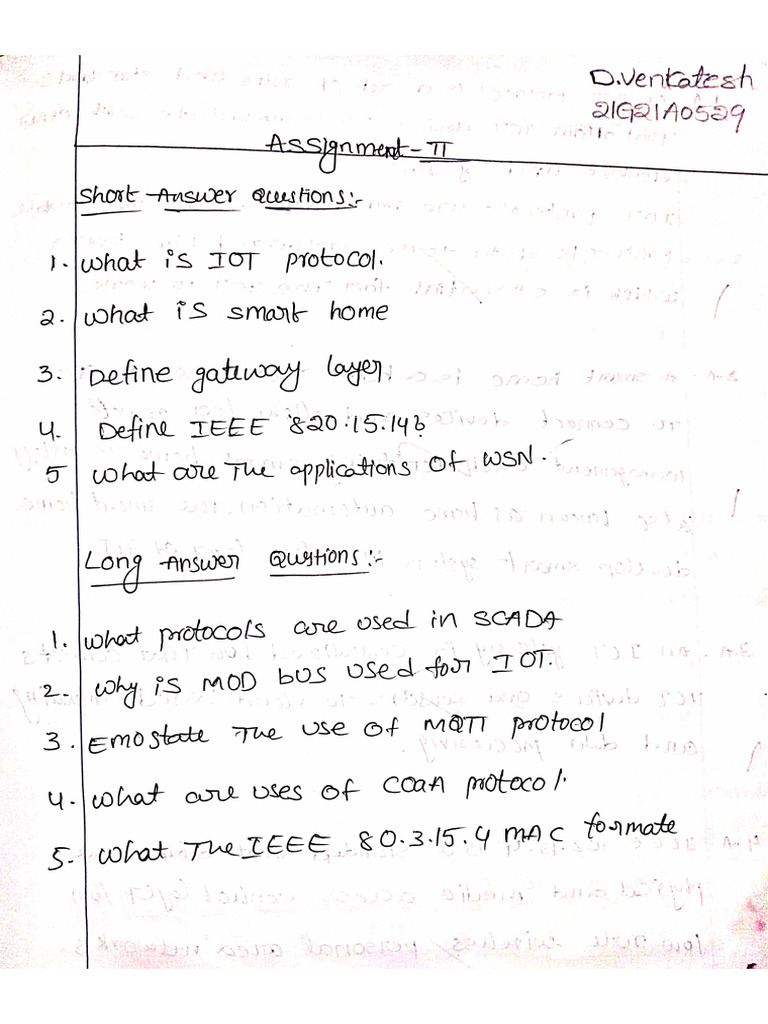 D.Venkatesh
21G21A0529
Assignment-II
Short Answer Questions:-
1. What is IOT protocol.
2. What is smart home
3. Define gateway layer.
4. Define IEEE 820.15.14?
5 What are The applications of WSN.
Long Answer Qustions:-
1. What protocols are used in SCADA
2. Why is MOD bus used for IOT.
3. EMO state The use of MQTT protocol
4. What are uses of COAA protocol.
5. What The IEEE 80.3.15.4 MAC formate